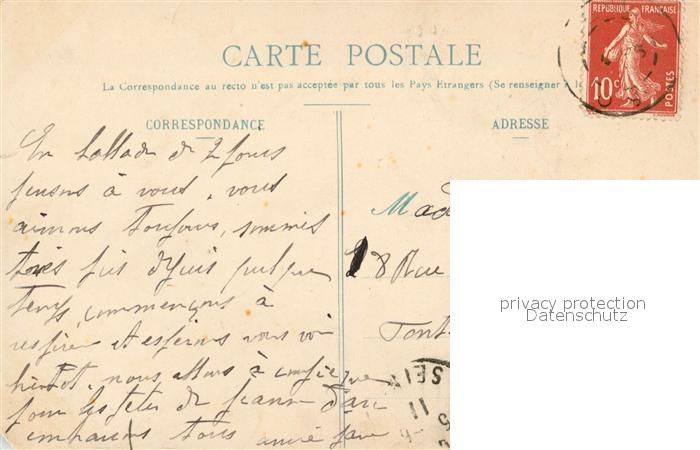 RÉPUBLIQUE FRANÇAISE
10c POSTES
CARTE POSTALE
La Correspondance au recto n'est pas acceptée par tous les Pays Etrangers (Se renseigner à la
CORRESPONDANCE
ADRESSE
En ballade de 2 jours
pensons à vous, vous
aimons toujours, sommes
très pris depuis quelque
temps, commençons à
respirer et espérons vous voir
bientôt, nous allons à Compiègne
pour les fêtes de Jeanne d'arc
embrassons tous
Mad
8 Rue
Font
SEIN
11
privacy protection
Datenschutz